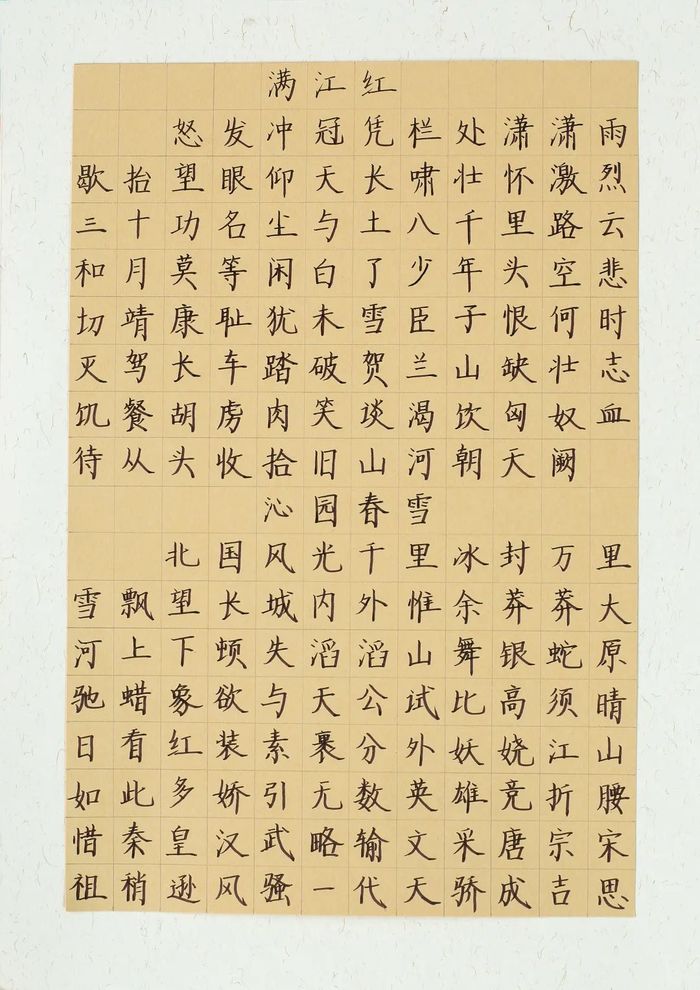 满江红
怒发冲冠凭栏处潇潇雨
歇抬望眼仰天长啸壮怀激烈
三十功名尘与土八千里路云
和月莫等闲白了少年头空悲
切靖康耻犹未雪臣子恨何时
灭驾长车踏破贺兰山缺壮志
饥餐胡虏肉笑谈渴饮匈奴血
待从头收拾旧山河朝天阙
沁园春雪
北国风光千里冰封万里
雪飘望长城内外惟余莽莽大
河上下顿失滔滔山舞银蛇原
驰蜡象欲与天公试比高须晴
日看红装素裹分外妖娆江山
如此多娇引无数英雄竞折腰
惜秦皇汉武略输文采唐宗宋
祖稍逊风骚一代天骄成吉思